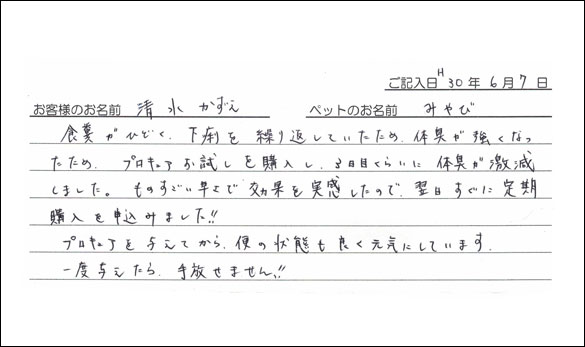 ご記入日 H30年 6月 7日
お客様のお名前 清水 かずえ ペットのお名前 みやび
食糞がひどく、下痢を繰り返していたため、体臭が強くなっ
たため、プロキュアお試しを購入し、3日目くらいに体臭が激減
しました。ものすごい早さで効果を実感したので、翌日すぐに定期
購入を申込みました!!
プロキュアを与えてから、便の状態も良く元気にしています。
一度与えたら、手放せません!!